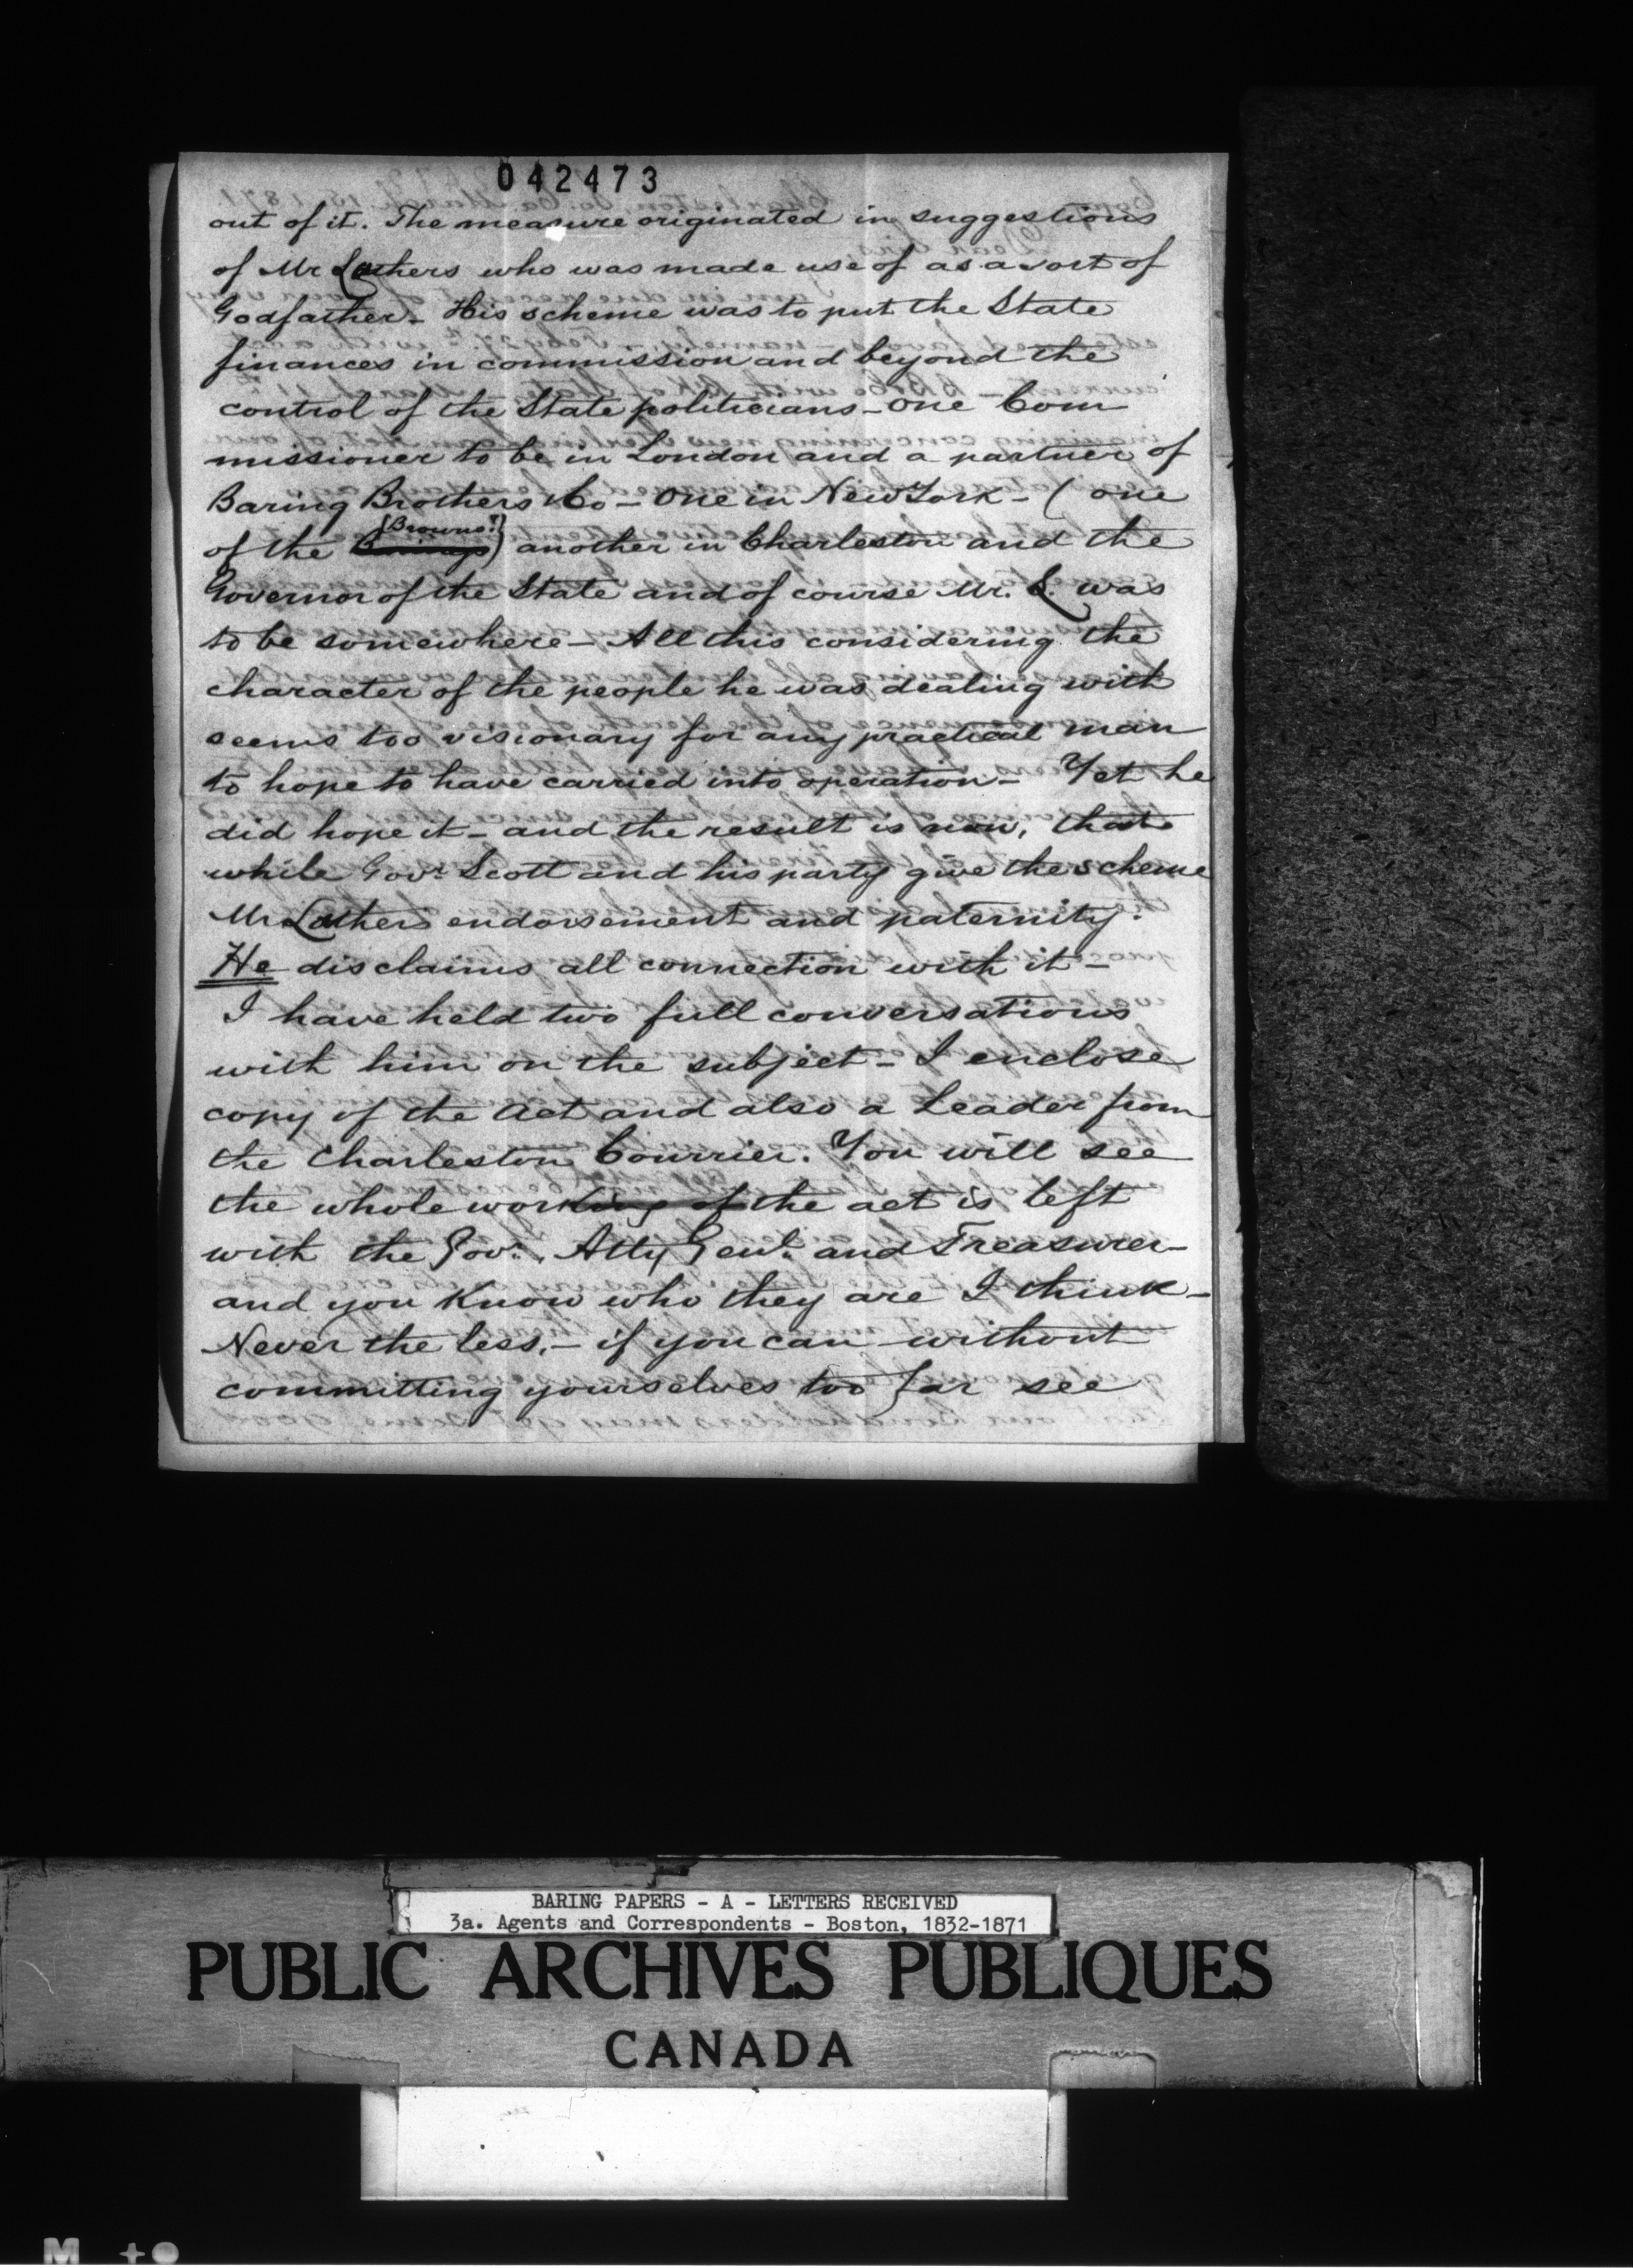 042473
out of it. The measure originated in suggestions
of Mr Lathers who was made use of as a sort of
Godfather - His scheme was to put the State
finances in commission and beyond the
control of the State politicians - one Com
missioner to be in London and a partner of
Baring Brothers & Co - one in New York - (one
of the {Browns?}) another in Charleston and the
Governor of the State and of course Mr. L. was
to be somewhere - All this considering the
character of the people he was dealing with
seems too visionary for any practical man
to hope to have carried into operation - Yet he
did hope it - and the result is now, that
while Govr. Scott and his party give the scheme
Mr Lathers endorsement and paternity.
He disclaims all connection with it -
I have held two full conversations
with him on the subject - I enclose
copy of the Act and also a Leader from
the Charleston Courrier. You will see
the whole working of the act is left
with the Govr. Atty Genl. and Treasurer -
and you know who they are I think -
Never the less, - if you can without
committing yourselves too far see
BARING PAPERS - A - LETTERS RECEIVED
3a. Agents and Correspondents - Boston, 1832-1871
PUBLIC ARCHIVES PUBLIQUES
CANADA